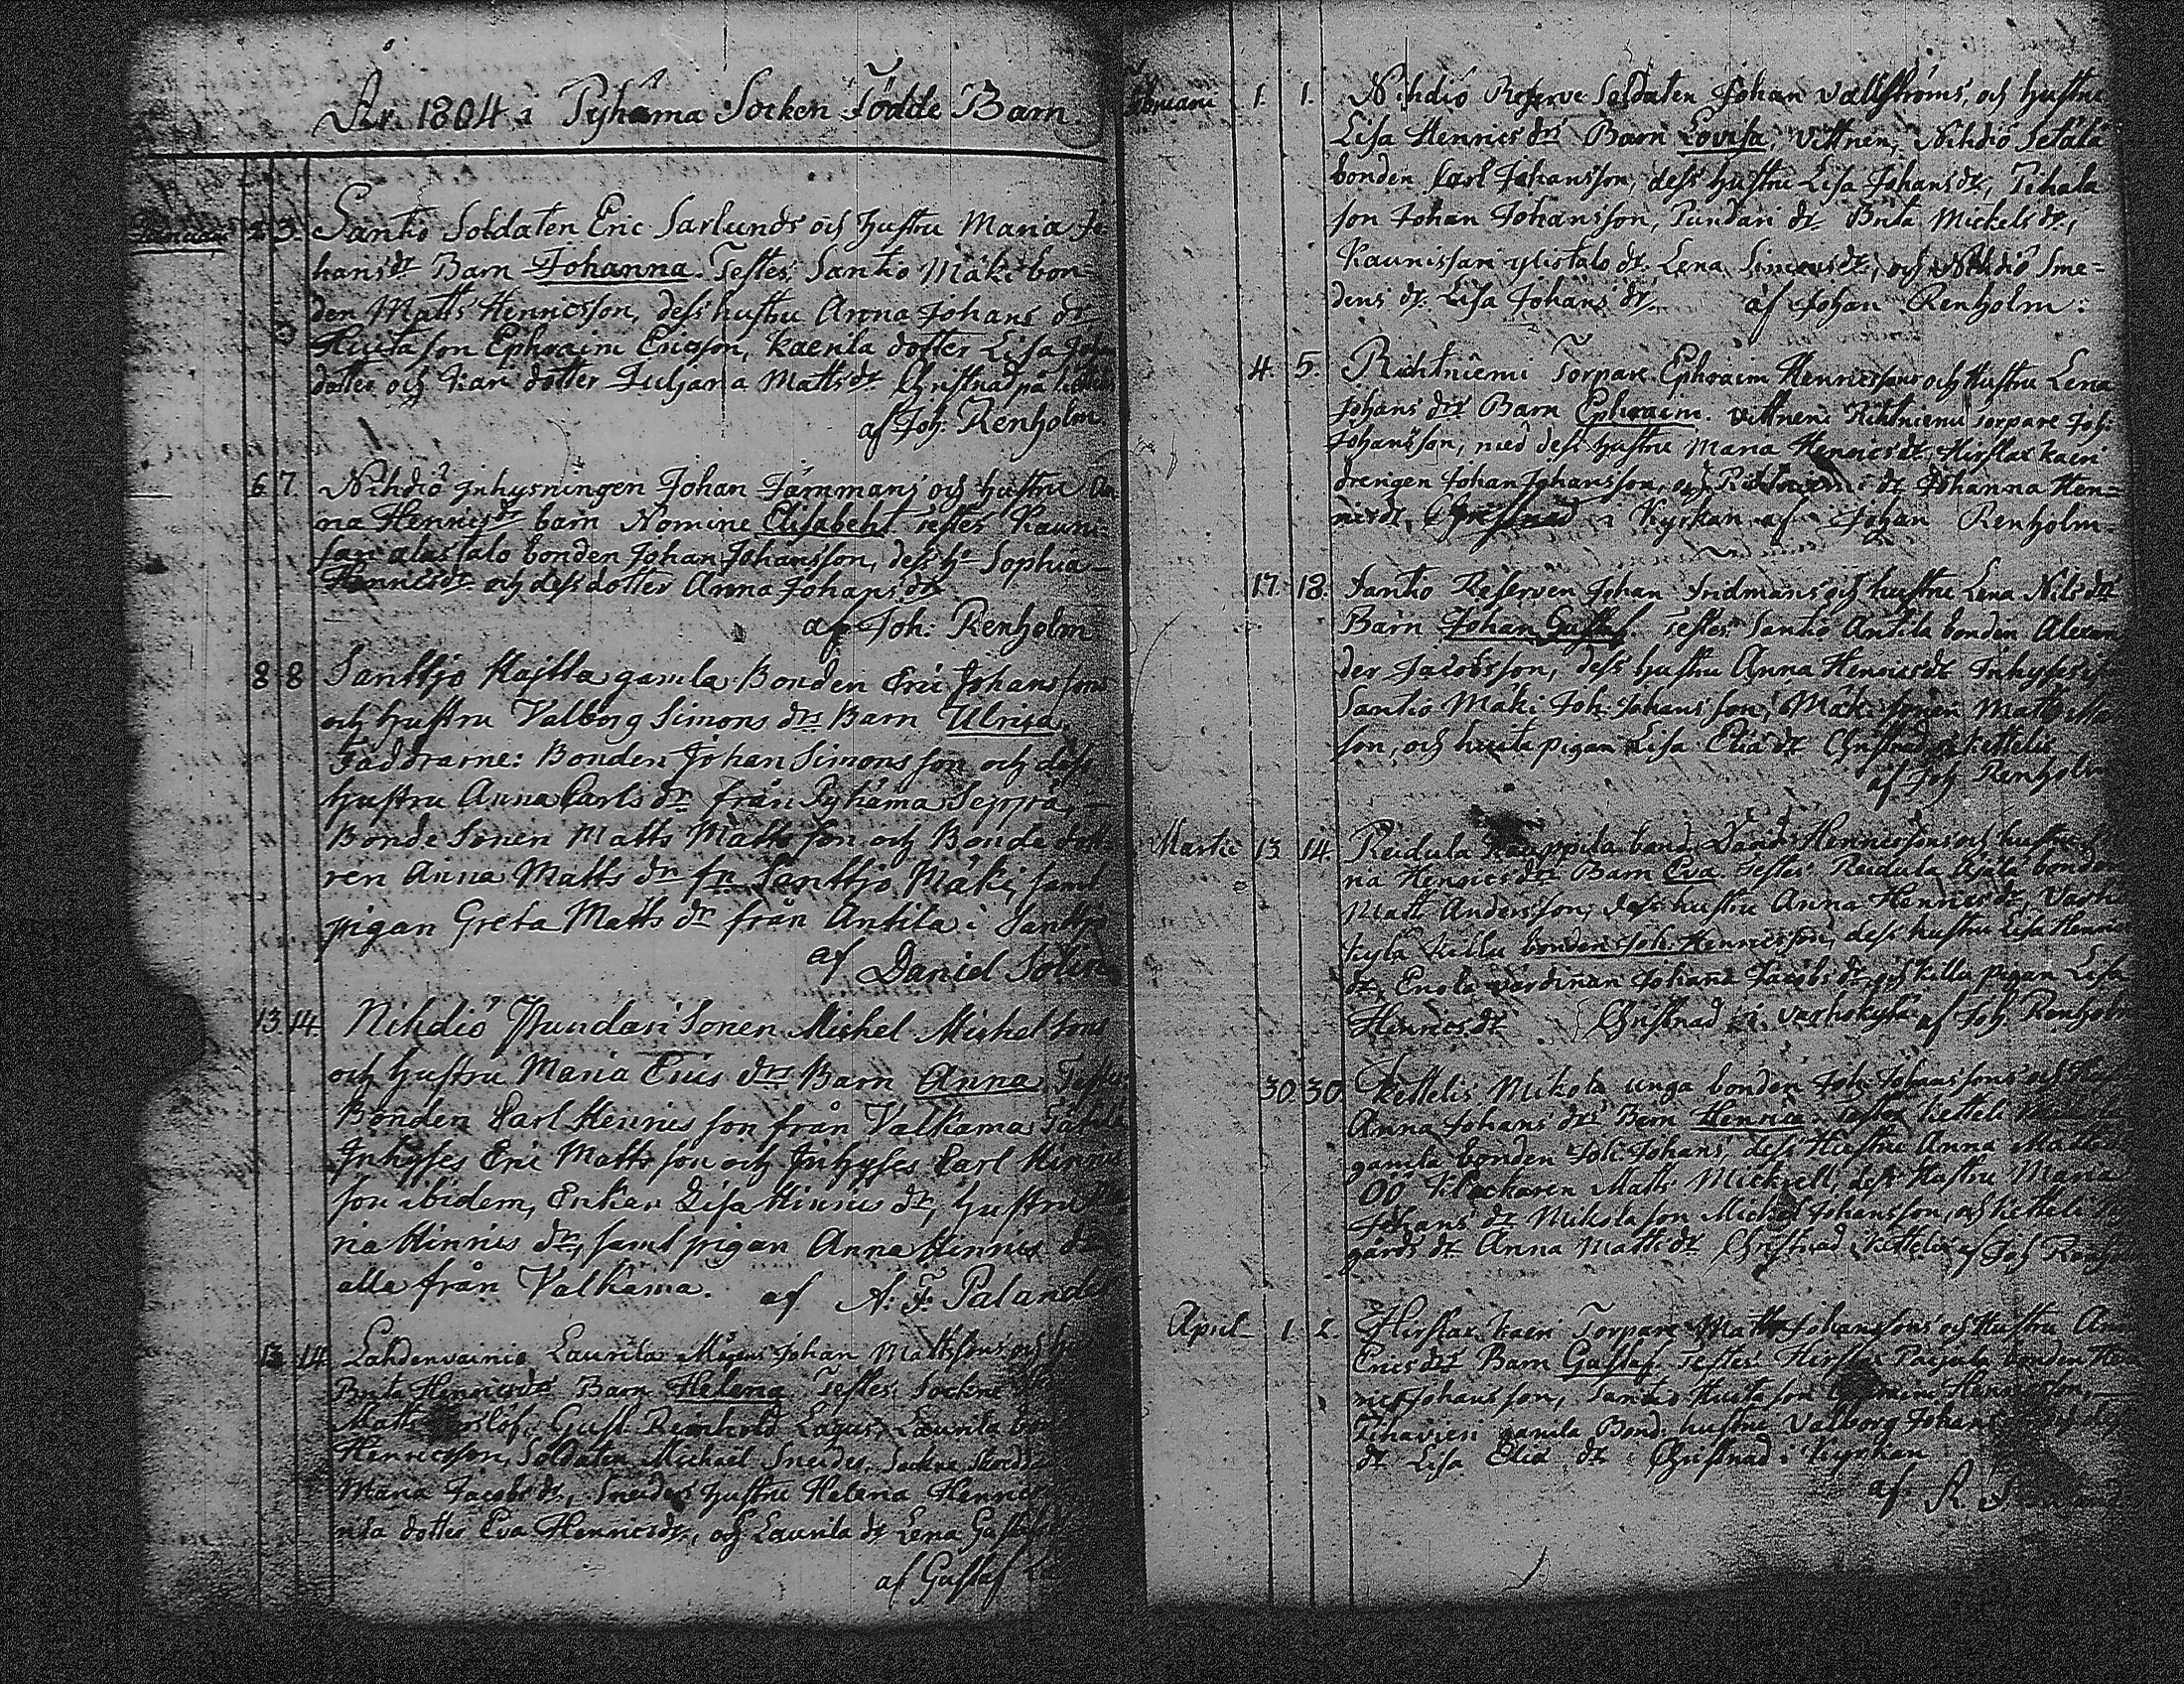 År 1804 i Pyhäma Socken Födde Barn.
Januari 2 3. Santio Soldaten Eric Sarlunds och hustru Maria Jo-
hans dr Barn Johanna. Testes: Santio Mäki bon-
den Matts Henricsson, dess hustru Anna Johans dr
Huita son Ephraim Ericsson, Kaerila dotter Lisa Joh
dotter och Kari dotter Juljana Matts dr Christnad på
af Joh. Renholm.
6. 7. Nihdiö Inhysningen Johan Järnmans och hustru An-
na Henrics dr barn Nomine Elisabeht Testes Kauni-
sari alastalo bonden Johan Johansson, dess h. Sophia
Henricsdr och dess dotter Anna Johans dr
af Joh: Renholm
8 8 Santtjo Hajtta gamla Bonden Eric Johans sons
och hustru Valborg Simons drs Barn Ulrica
Faddrarne: Bonden Johan Simons son och dess
hustru Anna Carls dr från Pyhäma Seppä,
Bonde Sonen Matts Matts son och Bonde dott-
ren Anna Matts dr fn Santtjo Mäki, samt
pigan Greta Matts dr från Antila i Santtjo
af Daniel Solin
13 14. Nihdiö Pundari Sonen Michel Michel sons
och hustru Maria Erics drs Barn Anna Testes
Bonden Carl Henrics son från Valkama
Inhyses Eric Matts son och Inhyses Carl Hinrics
son ibidem, Enkan Lisa Hinrics dr, hustru Ma
ria Hinrics dr, samt pigan Anna Hinrics dr
alla från Valkama. af A: F: Palander
13 14 Lahdenvainio Laurila Mågens Johan Mattssons och
Brita Henricsdrs Barn Helena Testes: Sockne
Matts Gust. Reinhold Lagus, Laurila
Henricsson, Soldaten Michael Sneider, Sockne
Maria Jacobs dr, Sneiders hustru Helena Henrics
rila dotter Eva Henricsdr, och Laurila dr Lena Gustafs
af Gustaf
Februarii 1. 1. Nihdiö Reserve Soldaten Johan Vallströms, och hustru
Lisa Henrics drs Barn Lovisa, Vittnen; Nihdiö Setälä
bonden Carl Johansson, dess hustru Lisa Johansdr, Pihala
son Johan Johansson, Pundari dr Brita Mickels dr,
Kaunissari ylistalo dr Lena Simonsdr, och Nihdiö Sme-
dens dr Lisa Johans dr. af Johan Renholm.
4. 5. Rihtniemi Torpare Ephraim Henricssons och Hustru Lena
Johans drs Barn Ephraim. Vittnen: Rihtniemi torpare Joh:
Johansson, med dess hustru Maria Henricsdr Hirslax Kaeri
drengen Johan Johansson, och Rihtniemi dr Johanna Hen-
ricsdr, Christnad i Kyrkan af Johan Renholm.
17. 18. Santio Reserven Johan Fridmans och hustru Lena Nils drs
Barn Johan Gustaf. Testes: Santio Antila bonden Alexan
der Jacobsson, dess hustru Anna Henricsdr Inhyses
Santio Mäki Joh. Johans son, Mäki sonen Matts
son, och huita pigan Lisa Eliæ dr Christnad i Kettelis
af Joh Renholm
Martii 13 14. Reidula Kauppila bond. David Henricssons och hustru
ria Henrics drs Barn Eva Testes: Reidula Äjälä bonden
Matt Andersson, dess hustru Anna Henricsdr, Varho
kylä Killu bonden Joh: Henricsson, dess hustru Lisa Henrics
dr, Enola värdinan Johana Jacobs dr, och Killu pigan Lisa
Henricsdr Christnad i Varhokylä af Joh. Renholm
30 30. Kettelis Mikola unga bonden Joh Johanssons och Hust
Anna Johans drs Barn Henric. Testes: Ketteli
gamla bonden Joh. Johans, dess Hustru Anna Matts
Klockaren Matts Mickæll, dess Hustru Maria
Johans dr Mikola son Michel Johansson, och Ketteli
gårds dr Anna Matts dr Christnad i Kettelis af Joh Renholm
April 1. 2. Hirslax Kaeri Torpare Matts Johanssons och Hustru Ana
Erics drs Barn Gustaf Testes: Hirslax Paijula bonden Hen
ric Johansson, Santio Huita son Henricsson,
Pihavieri gamla Bond. hustru Valborg Johans
dr Lisa Eliæ dr Christnad i Kyrkan
af A.